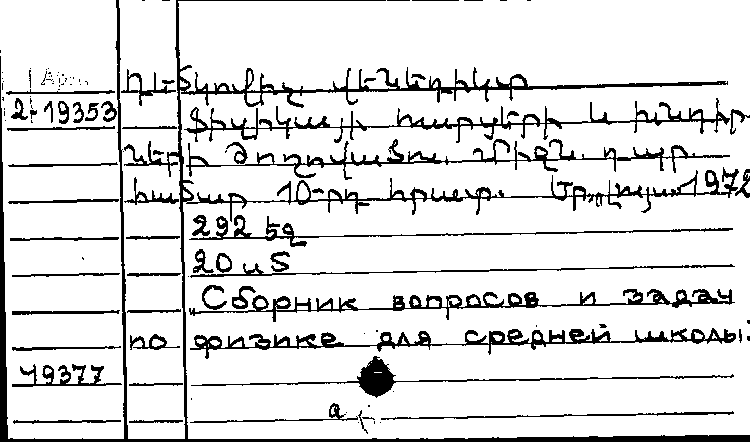 Арм.
Դեմկովիչ, Վենեդիկտ
2-19353
Ֆիզիկայի հարցերի և խնդիր
ների ժողովածու. Միջն. դպր.
համար 10-րդ հրատ. Եր., „Լույս" 1972
292 էջ
20 և 5
„Сборник вопросов и задач
по физике для средней школы.
49377
а